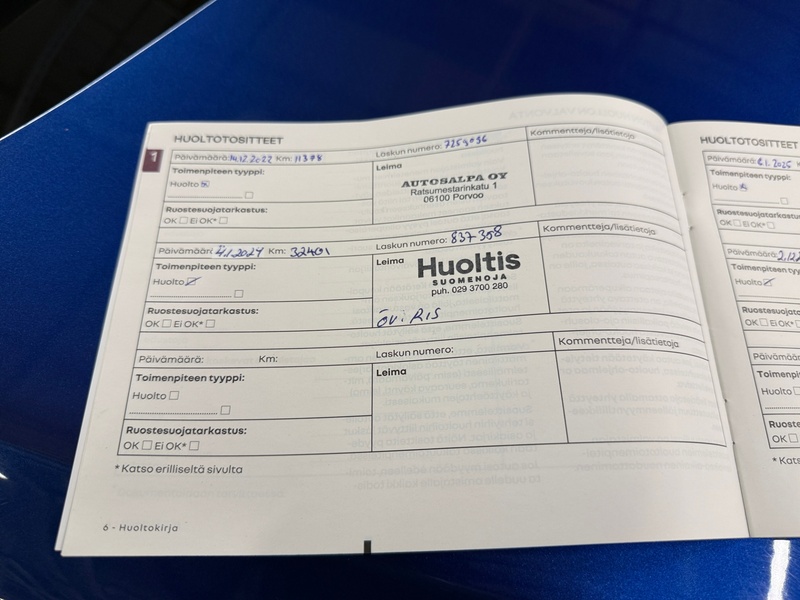 HUOLTOTOSITTEET
1
Päivämäärä: 14.12.2022 Km: 11378 Laskun numero: 7259036 Kommentteja/lisätietoja
Toimenpiteen tyyppi: Leima
Huolto
AUTOSALPA OY
Ratsumestarinkatu 1
06100 Porvoo
Ruostesuojatarkastus:
OK ☐ Ei OK* ☐
Päivämäärä: 4.1.2024 Km: 32401 Laskun numero: 837308 Kommentteja/lisätietoja
Toimenpiteen tyyppi: Leima
Huolto
Huoltis
SUOMENOJA
puh. 029 3700 280
Ruostesuojatarkastus:
OK ☐ Ei OK* ☐
öv. RIS
Päivämäärä: Km: Laskun numero: Kommentteja/lisätietoja
Toimenpiteen tyyppi: Leima
Huolto ☐
Ruostesuojatarkastus:
OK ☐ Ei OK* ☐
* Katso erilliseltä sivulta
6 - Huoltokirja
HUOLTOTOSITTEET
Päivämäärä:
Toimenpiteen
Huolto
Ruostesuojata
OK ☐ Ei OK* ☐
Päivämäärä:
Toimenpiteen ty
Huolto
Ruostesuojata
OK ☐ Ei OK* ☐
Päivämäärä
Toimenpite
Huolto
Ruostesuo
OK ☐ Ei O
* Kats